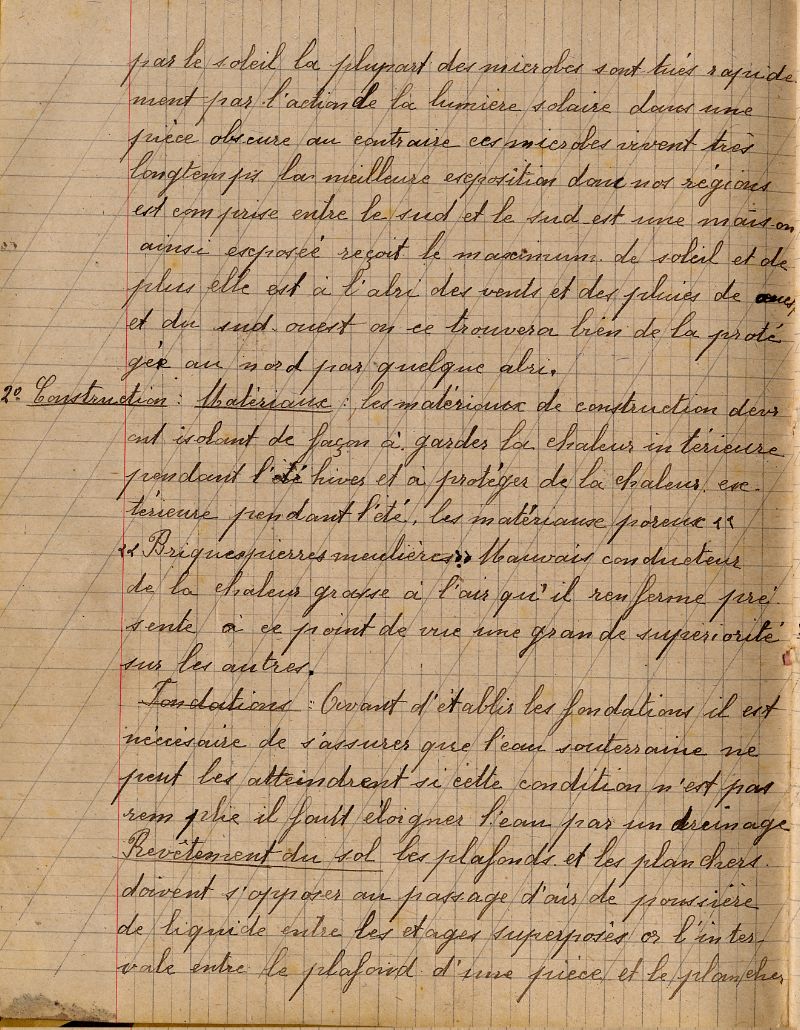 par le soleil la plupart des microbes sont tués rapide
ment par l'action de la lumière solaire dans une
pièce obscure au contraire ces microbes vivent très
longtemps la meilleure exposition dans nos régions
est comprise entre le sud et le sud-est une maison
ainsi exposée reçoit le maximum de soleil et de
plus elle est à l'abri des vents et des pluies de
et du sud-ouest on ce trouvera bien de la proté
gée au nord par quelque abri.
2° Construction : Matériaux : les matériaux de construction devr
ont isolant de façon à garder la chaleur intérieure
pendant l'été hiver et à protéger de la chaleur ex-
térieure pendant l'été, les matériaux poreux «
« Briques pierres meulières » Mauvais conducteur
de la chaleur grasse à l'air qu'il renferme pré
sente à ce point de vue une grande superiorité
sur les autres.
Fondations : Avant d'établir les fondations il est
nécésaire de s'assurer que l'eau souterraine ne
peut les atteindrent si cette condition n'est pas
remplie il fautt éloigner l'eau par un dreinage
Revêtement du sol les plafonds et les planchers
doivent s'opposer au passage d'air de poussière
de liquide entre les etages superposés or l'inter-
vale entre le plafond d'une pièce et le plancher